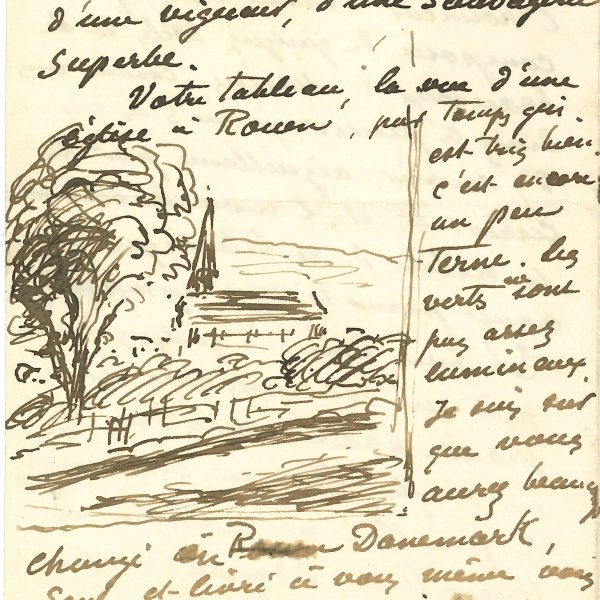 d'une vigueur, d'une sauvagerie
superbe.
Votre tableau, la vue d'une
église à Rouen, par temps gris
est très bien.
c'est encore
un peu
terne. les
verts ne sont
pas assez
lumineux.
Je suis sûr
que vous
aurez beaucoup
changé en Danemark,
seul et livré à vous même vous